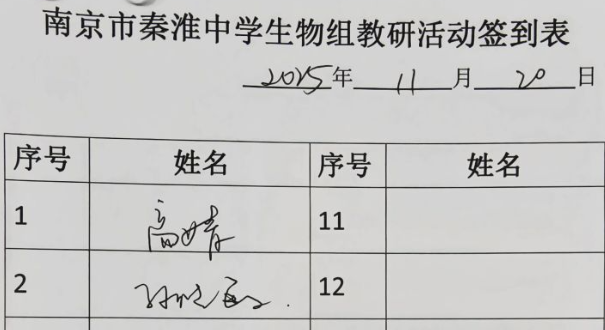 南京市秦淮中学生物组教研活动签到表
2025年 11 月 20 日
序号 姓名 序号 姓名
1 高婧 11
2 12